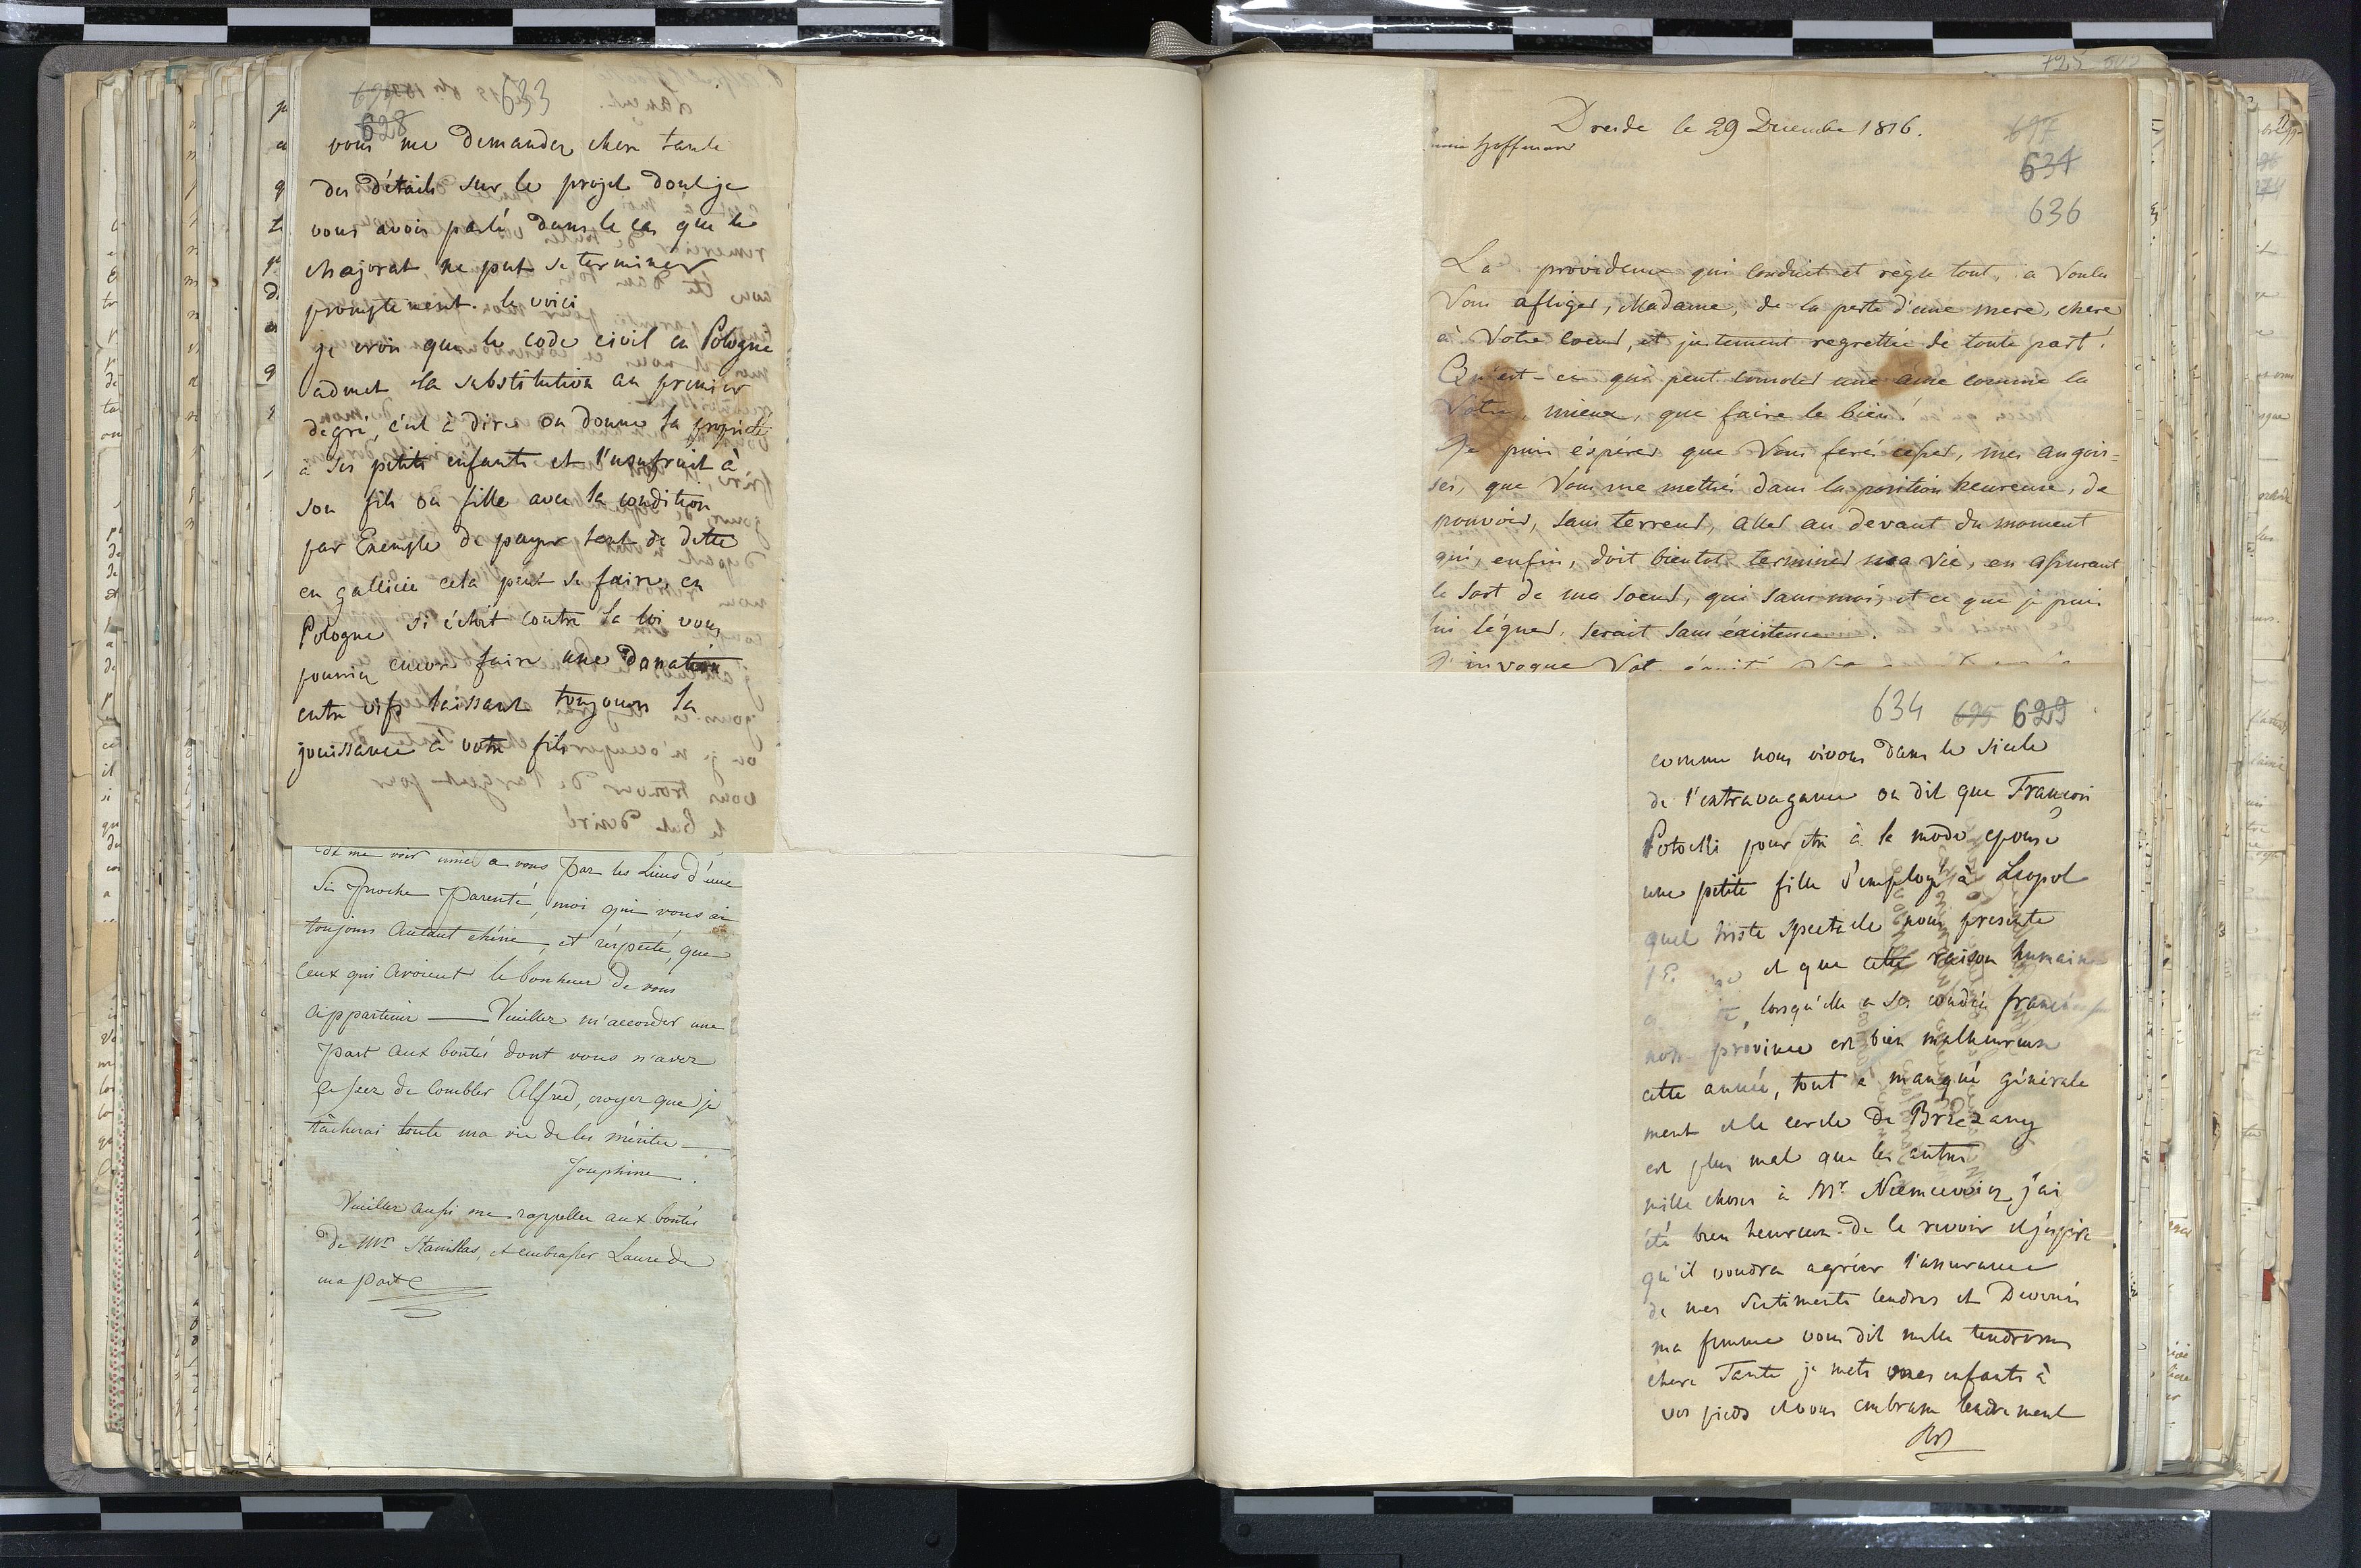 633
628
vous me demandez chere tante
des détails sur le projet dont je
vous avois parlé dans le cas que le
Majorat ne put se terminer
promptement. le voici
je crois que le code civil en Pologne
admet la substitution au premier
degré, c'est à dire on donne la propriété
a ses petits enfants et l'usufruit à
son fils ou fille avec la condition
par Exemple de payer tant de dette
en gallicie cela peut se faire, en
Pologne si c'étoit contre la loi vous
pourriez encore faire une donation
entre vifs laissant toujours la
jouissance a votre fils
de me voir unie a vous par les Liens d'une
Si proche Parenté, moi qui vous ai
toujours Autant chérie, et réspecté, que
Ceux qui Avoient le bonheur De vous
Appartenir — Veuillez m'accorder une
Part aux bontés dont vous n'avez
Cessez de Combler Alfred, croyez que je
tâcherai toute ma vie de les mériter —
Josephine.
Veuillez aussi me rappeller aux bontés
De Mr Stanislas, et embrasser Laure de
ma part
725
Dresde le 29 Decembre 1816.
Hoffmann
697
634
636
La providence qui conduit et règle tout, a voulu
Vous afliger, Madame, de la perte d'une mere, chere
à Votre coeur, et justement regrettée de toute part!
Qu'est-ce qui peut consoler une ame comme la
Votre, mieux, que faire le bien!
Je puis éspérer que Vous ferés cesser, mes angois=
ses, que Vous me mettrés dans la position heureuse, de
pouvoir, sans terreur, aller au devant du moment
qui enfin, doit bientot terminer ma vie, en assurant
le sort de ma soeur, qui sans moi, et ce que je puis
lui léguer, serait sans éxistence.
J'invoque
634 695 629
comme nous vivons dans le siecle
de l'extravagance on dit que François
Potocki pour etre à la mode epouse
une petite fille d'employé à Leopol
quel triste spectacle nous presente
et que cette raison humaine
lorsqu'elle a ses coudées
province est bien malheureuse
cette année, tout a manqué générale
ment et le cercle de Brzezany
est plus mal que les autres
mille choses à Mr Niemcewicz j'ai
été bien heureux de le revoir et j'espere
qu'il voudra agréer l'assurance
de mes sentiments tendres et Devoués
ma femme vous dit mille tendresses
chere Tante je mets mes enfants à
vos pieds et vous embrasse tendrement